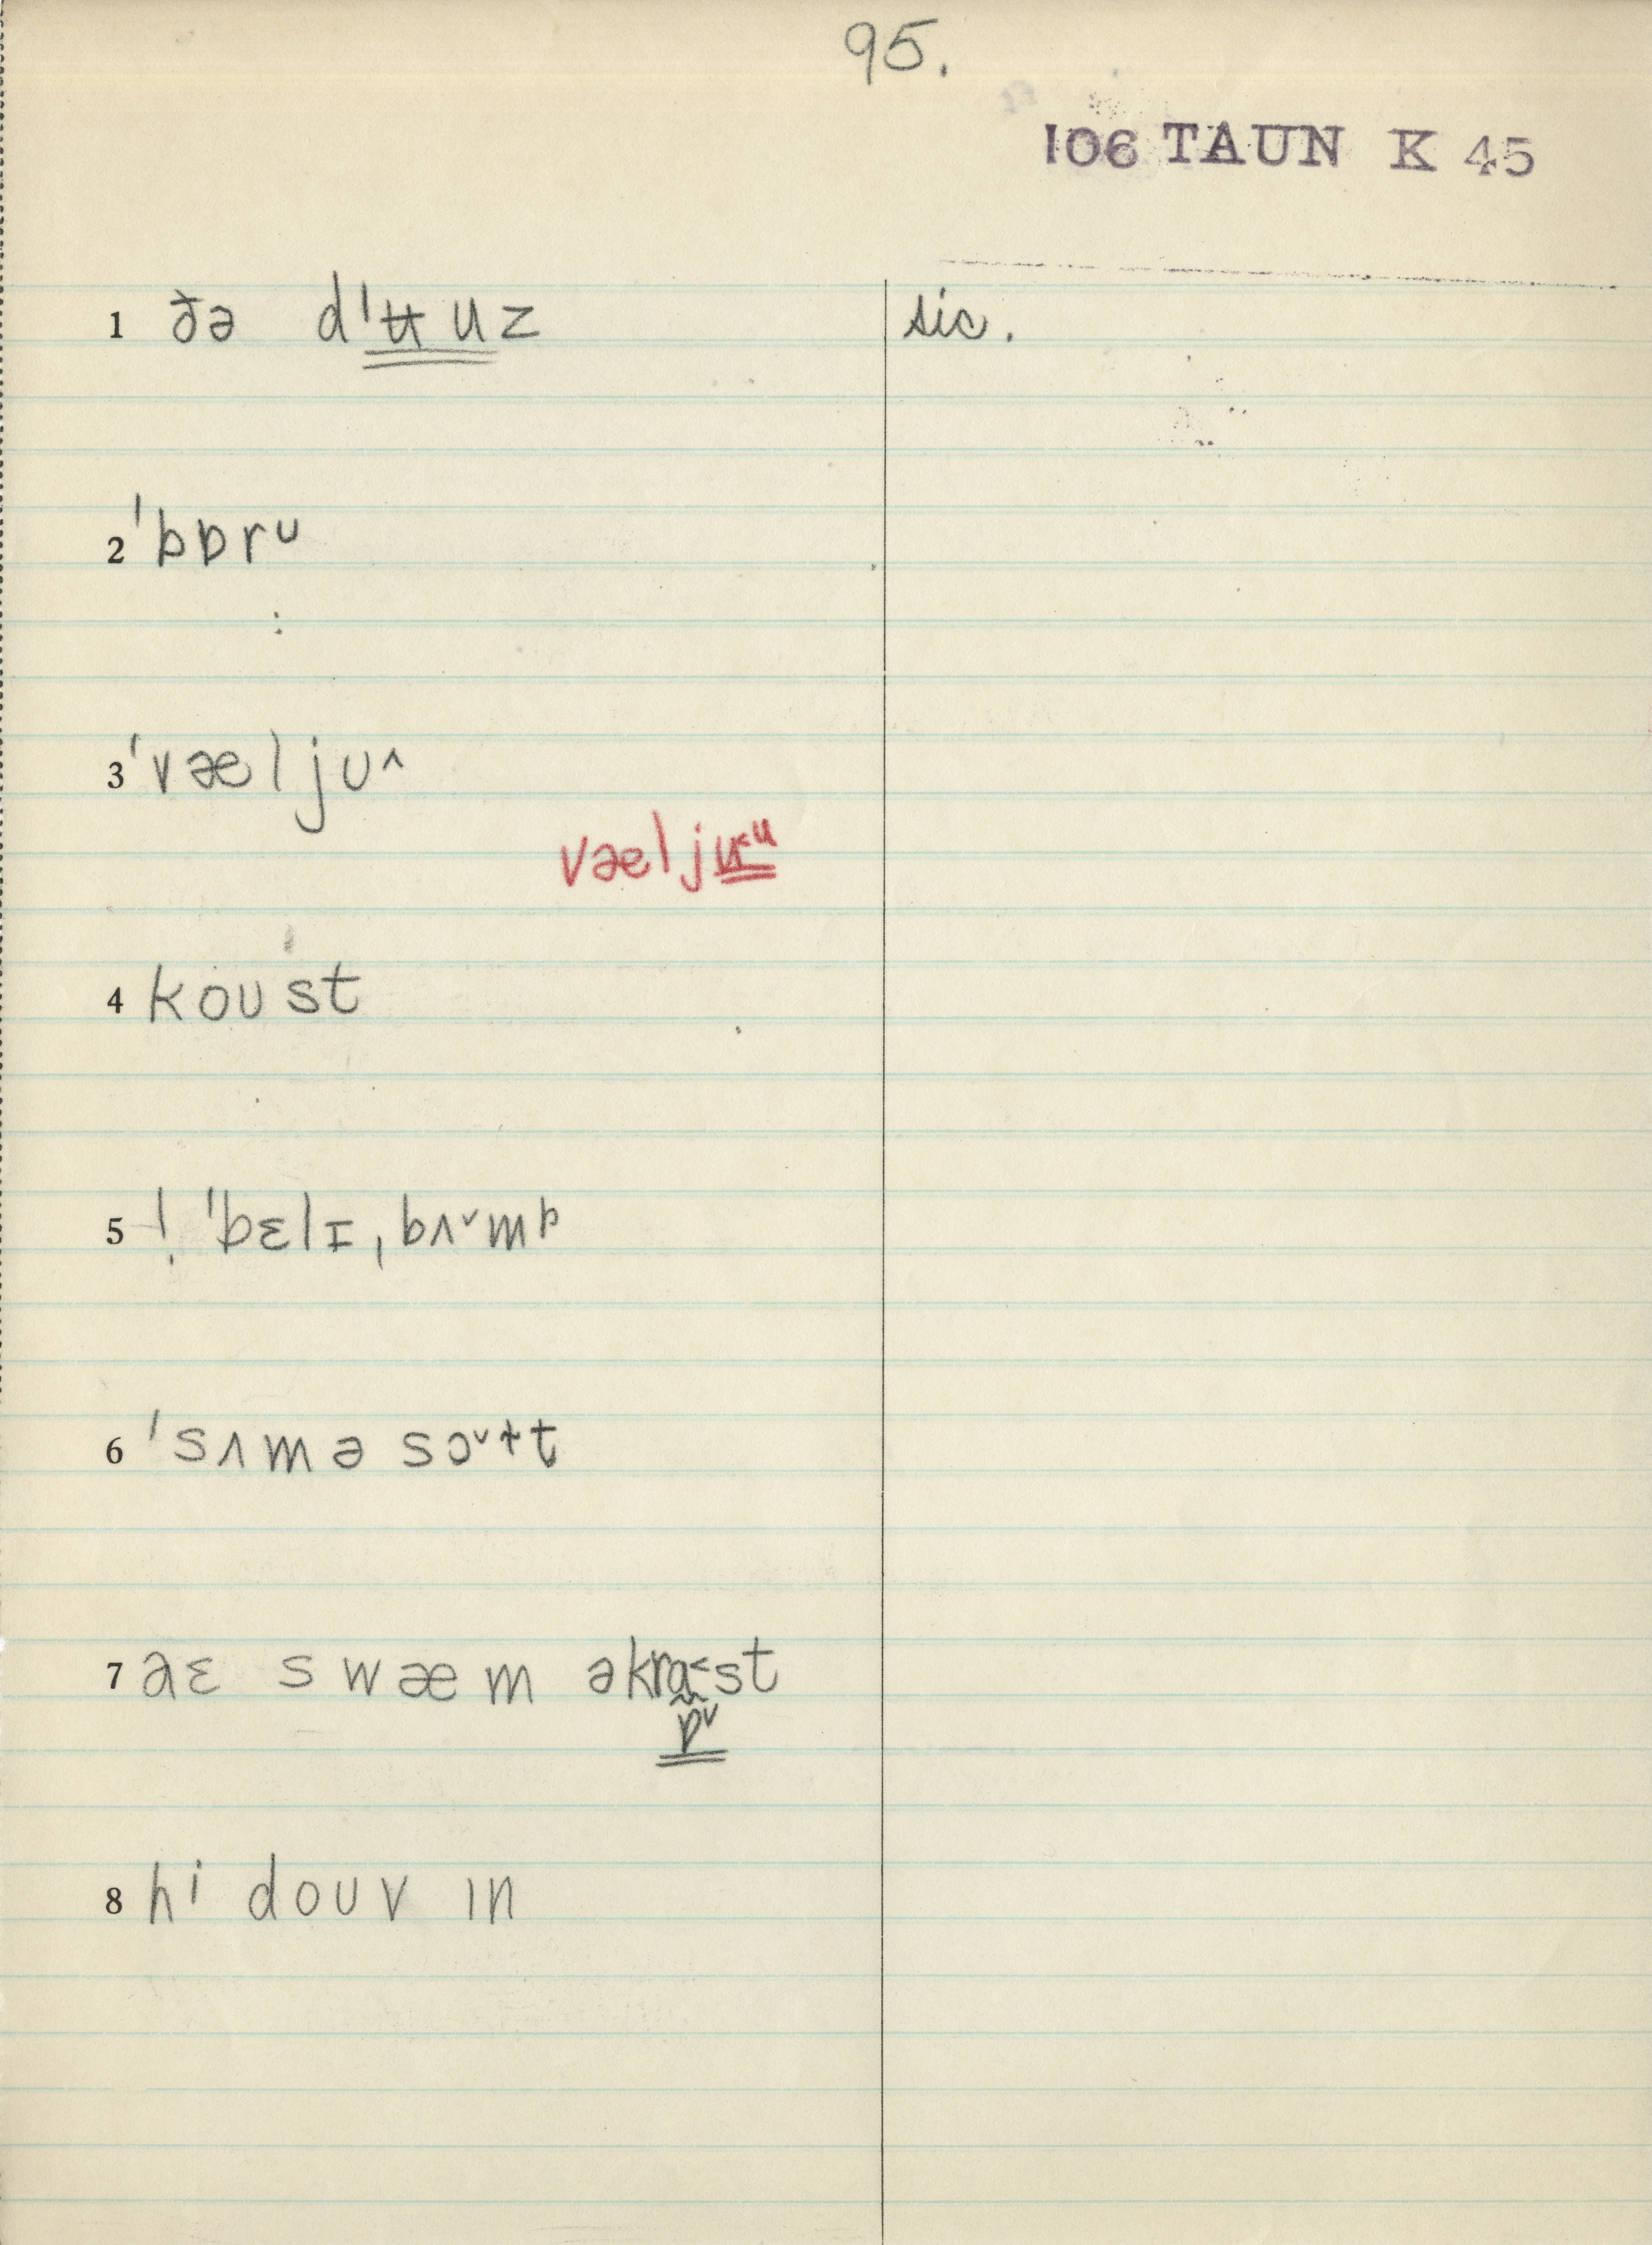 95.
106 TAUN K 45
1 ðə dˈʉuz sic.
2 ˈbɒrᴜ
3 ˈvæljᴜ˄
væljʉ˂ᵘ
4 koᴜst
5 ! ˈbɛlɪˌbʌ˅mp
6 ˈsʌmə sɔ˅ɫt
7 aɛ swæm əkrɑ˂st
ɒ˅
8 hi doᴜv ɪn